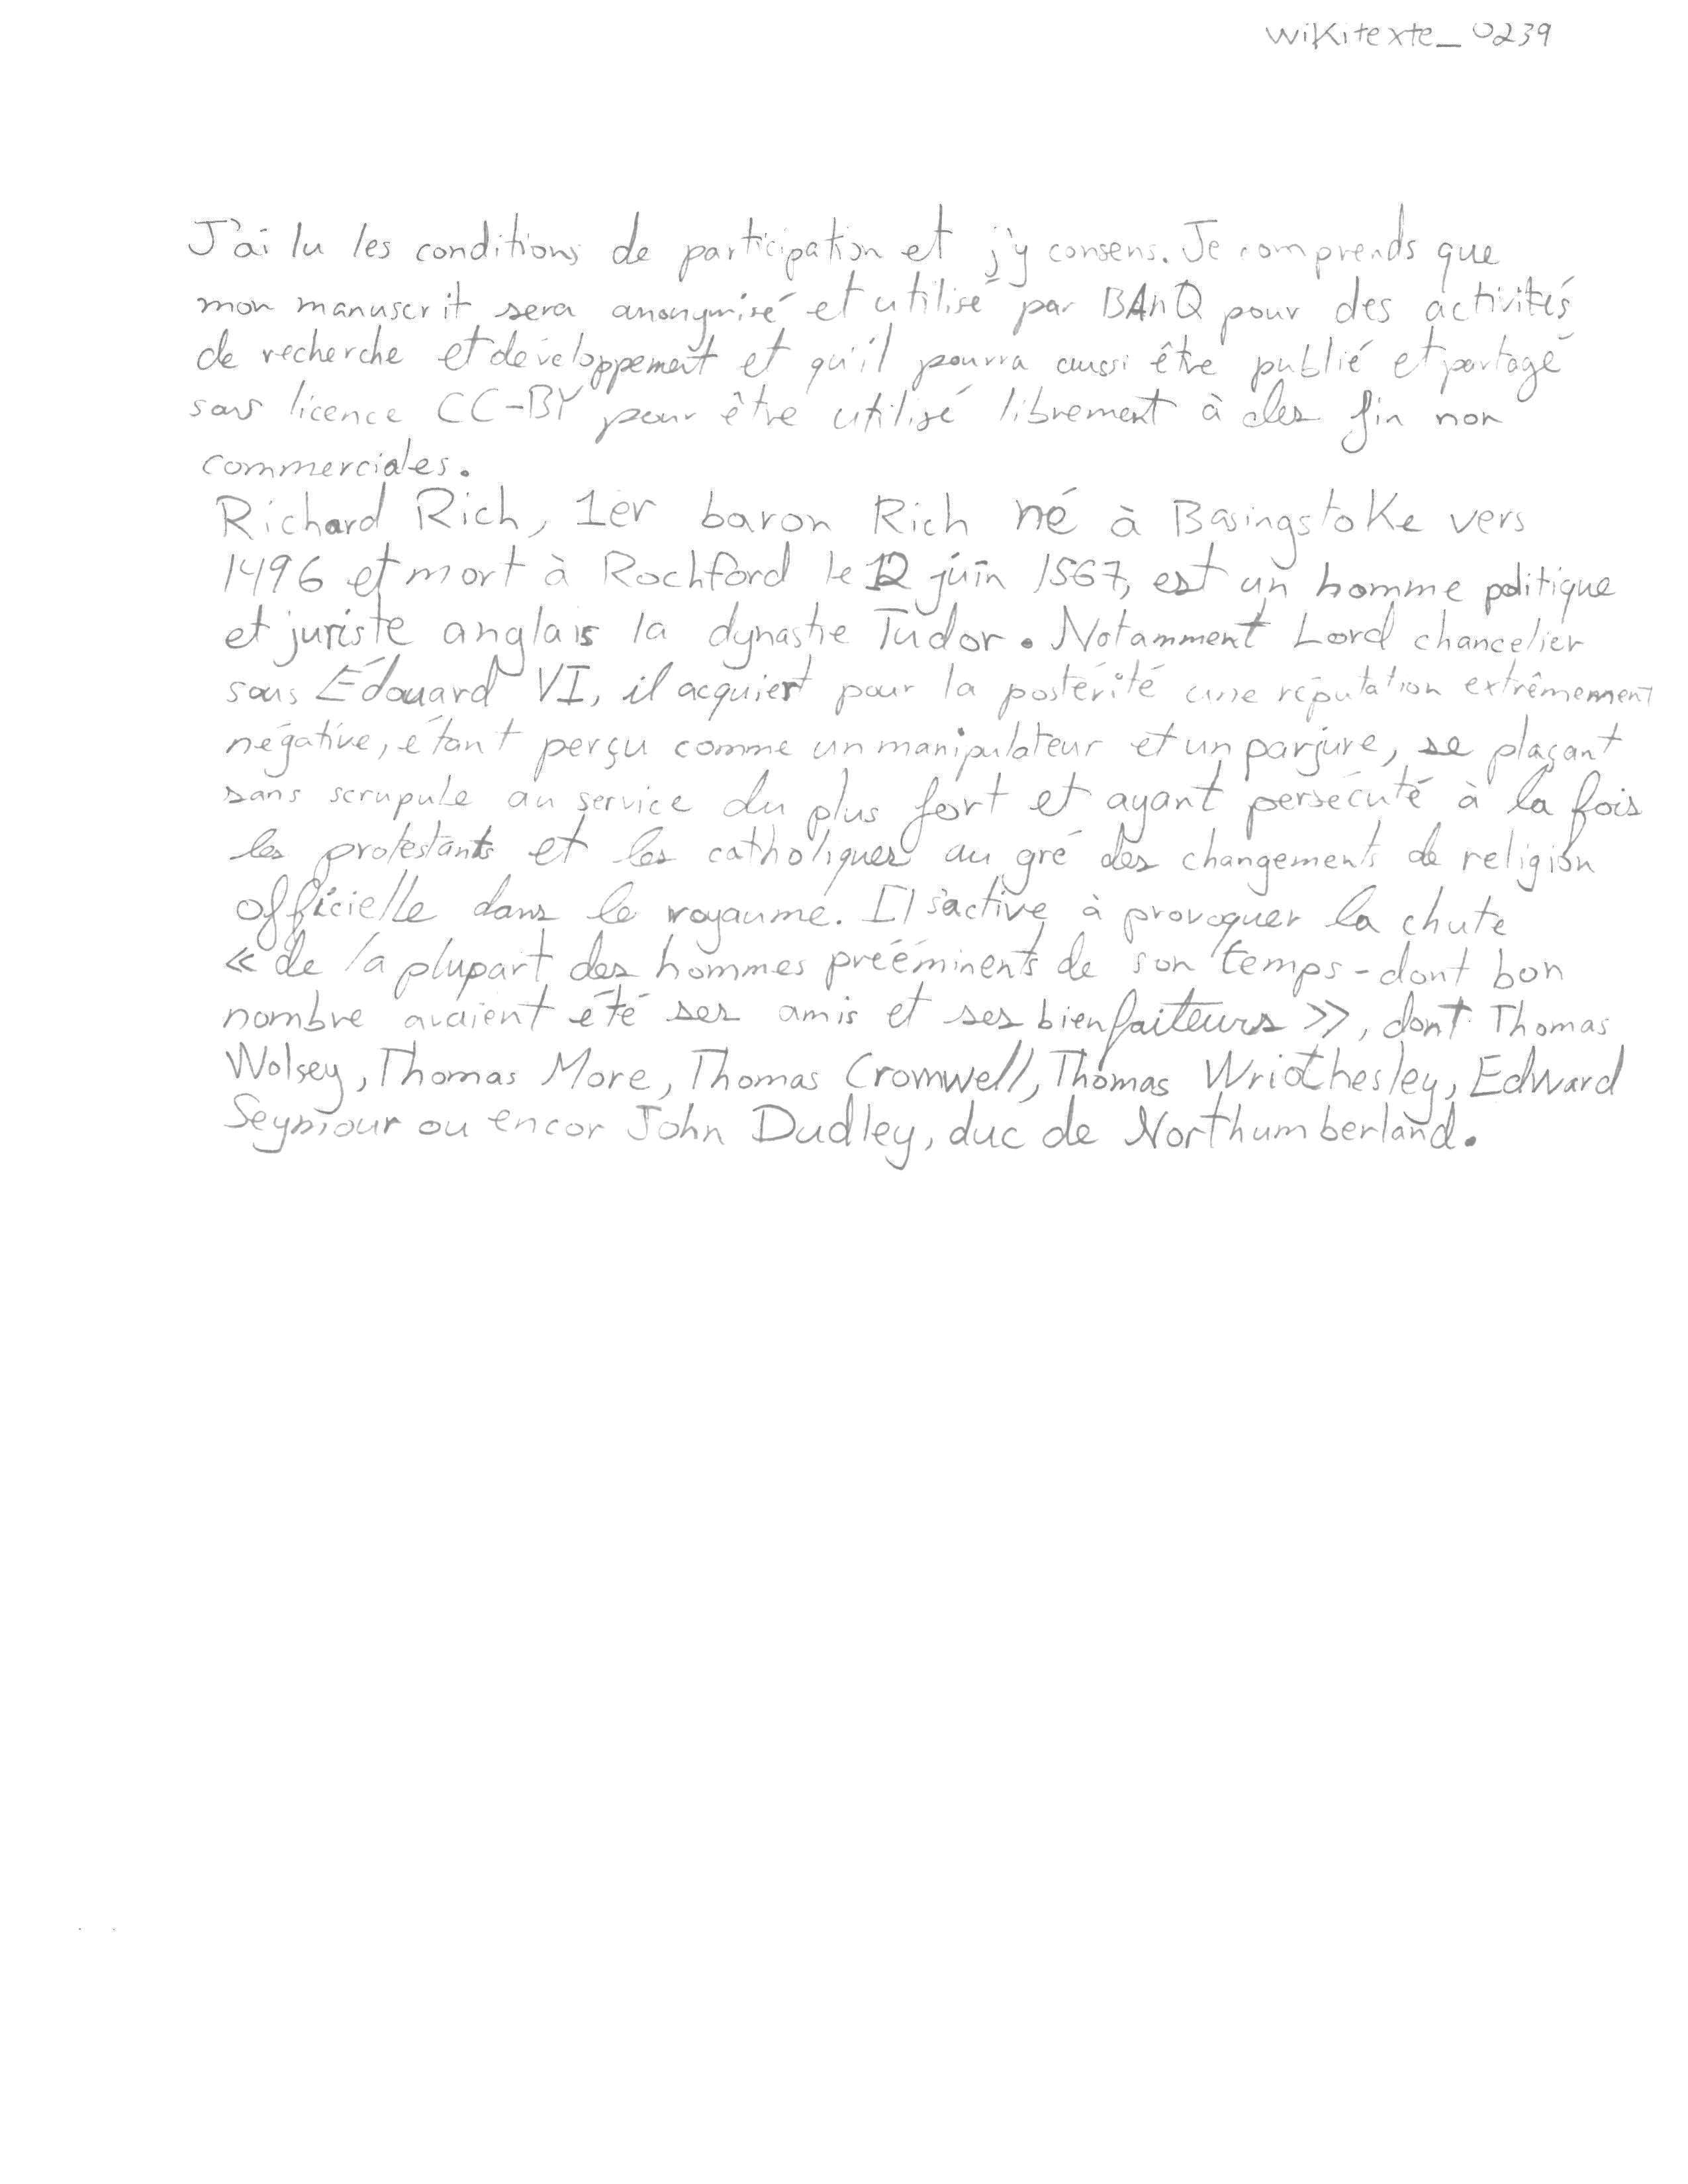 wikitexte_0239
J'ai lu les conditions de participation et j'y consens. Je comprends que
mon manuscrit sera anonymisé et utilisé par BAnQ pour des activités
de recherche et développement et qu'il pourra aussi être publié et partagé
sous licence CC-BY pour être utilisé librement à des fin non
commerciales.
Richard Rich, 1er baron Rich né à Basingstoke vers
1496 et mort à Rochford le 12 juin 1567, est un homme politique
et juriste anglais la dynastie Tudor. Notamment Lord chancelier
sous Édouard VI, il acquiert pour la postérité une réputation extrêmement
négative, étant perçu comme un manipulateur et un parjure, se plaçant
sans scrupule au service du plus fort et ayant persécuté à la fois
les protestants et les catholiques au gré des changements de religion
officielle dans le royaume. Il s'active à provoquer la chute
« de la plupart des hommes prééminents de son temps - dont bon
nombre avaient été ses amis et ses bienfaiteurs », dont Thomas
Wolsey, Thomas More, Thomas Cromwell, Thomas Wriothesley, Edward
Seymour ou encor John Dudley, duc de Northumberland.